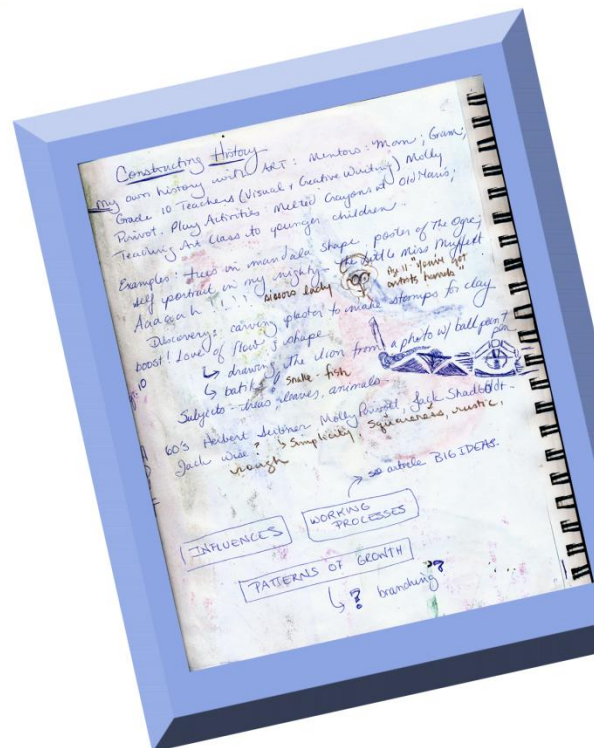 Constructing History
My own history with ART: Mentors: Mom; Gram;
Grade 10 Teachers (Visual + Creative Writing) Molly
Privot. Play Activities: Melted Crayons at Old Maris;
Teaching Art Class to younger children.
Examples: trees in mandala shape, poster of The Ogre;
self portrait in my nighty - the little Miss Muffett
Aaaaah !!!! scissors lady
Bill "you've got
artists hands"
Discovery: carving plaster to make stamps for clay
boost! Love of flow & shape
↳ drawing the lion from a photo w/ ball point
pen
↳ batik of snake - fish
Subjects - trees, leaves, animals
60's Herbert Molly Privot, Jack Shadbolt -
Jack Wise? → Simplicity, Squareness, rustic,
rough
→ see article BIG IDEAS.
INFLUENCES
WORKING
PROCESSES
PATTERNS OF GROWTH
↳ ? branching?